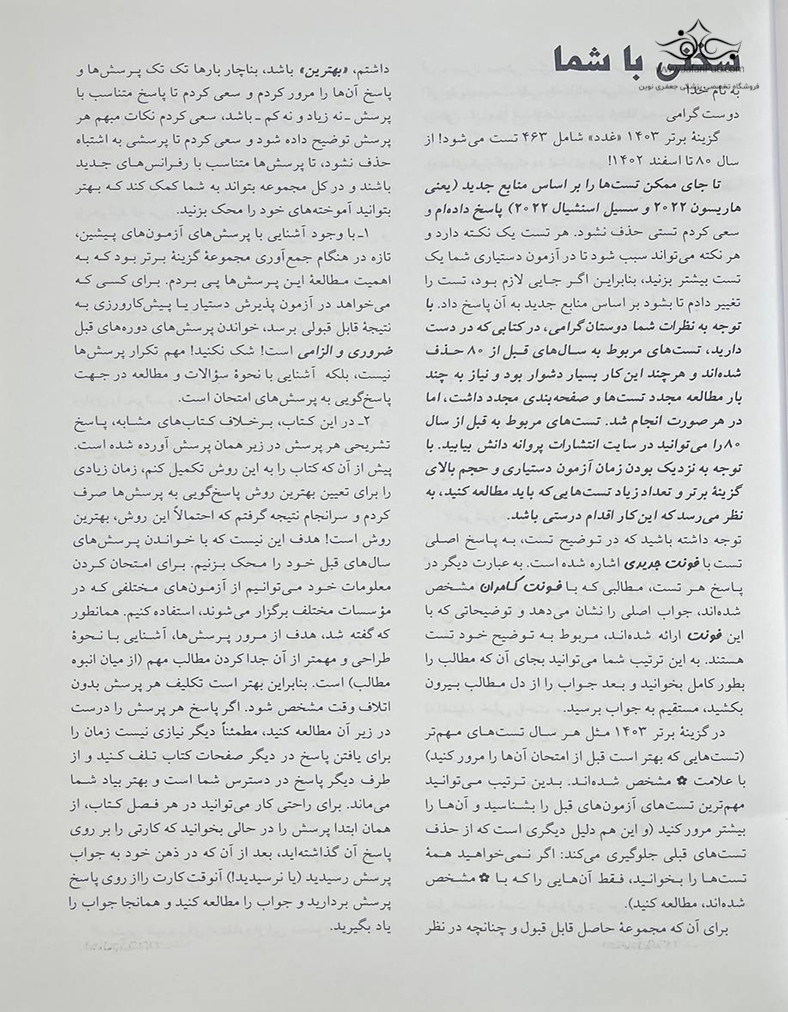 سخنی با شما
www.JafariPub.com
فروشگاه تخصصی پزشکی جعفری نوین
به نام خدا
دوست گرامی
گزینهٔ برتر ۱۴۰۳ «غدد» شامل ۴۶۳ تست می‌شود! از
سال ۸۰ تا اسفند ۱۴۰۲!
تا جای ممکن تست‌ها را بر اساس منابع جدید (یعنی
هاریسون ۲۰۲۲ و سسیل اسنشیال ۲۰۲۲) پاسخ داده‌ام و
سعی کردم تستی حذف نشود. هر تست یک نکته دارد و
هر نکته می‌تواند سبب شود تا در آزمون دستیاری شما یک
تست بیشتر بزنید، بنابراین اگر جایی لازم بود، تست را
تغییر دادم تا بشود بر اساس منابع جدید به آن پاسخ داد. با
توجه به نظرات شما دوستان گرامی، در کتابی که در دست
دارید، تست‌های مربوط به سال‌های قبل از ۸۰ حذف
شده‌اند و هرچند این کار بسیار دشوار بود و نیاز به چند
بار مطالعه مجدد تست‌ها و صفحه‌بندی مجدد داشت، اما
در هر صورت انجام شد. تست‌های مربوط به قبل از سال
۸۰ را می‌توانید در سایت انتشارات پروانه دانش بیابید. با
توجه به نزدیک بودن زمان آزمون دستیاری و حجم بالای
گزینهٔ برتر و تعداد زیاد تست‌هایی که باید مطالعه کنید، به
نظر می‌رسد که این کار اقدام درستی باشد.
توجه داشته باشید که در توضیح تست، به پاسخ اصلی
تست با فونت جدیدی اشاره شده است. به عبارت دیگر در
پاسخ هر تست، مطالبی که با فونت کامران مشخص
شده‌اند، جواب اصلی را نشان می‌دهد و توضیحاتی که با
این فونت ارائه شده‌اند، مربوط به توضیح خود تست
هستند. به این ترتیب شما می‌توانید بجای آن که مطالب را
بطور کامل بخوانید و بعد جواب را از دل مطالب بیرون
بکشید، مستقیم به جواب برسید.
در گزینهٔ برتر ۱۴۰۳ مثل هر سال تست‌های مهم‌تر
(تست‌هایی که بهتر است قبل از امتحان آن‌ها را مرور کنید)
با علامت ✿ مشخص شده‌اند. بدین ترتیب می‌توانید
مهم‌ترین تست‌های آزمون‌های قبل را بشناسید و آن‌ها را
بیشتر مرور کنید (و این هم دلیل دیگری است که از حذف
تست‌های قبلی جلوگیری می‌کند: اگر نمی‌خواهید همهٔ
تست‌ها را بخوانید، فقط آن‌هایی را که با ✿ مشخص
شده‌اند، مطالعه کنید).
برای آن که مجموعهٔ حاصل قابل قبول و چنانچه در نظر
داشتم، «بهترین» باشد، بناچار بارها تک تک پرسش‌ها و
پاسخ آن‌ها را مرور کردم و سعی کردم تا پاسخ متناسب با
پرسش ـ نه زیاد و نه کم ـ باشد، سعی کردم نکات مبهم هر
پرسش توضیح داده شود و سعی کردم تا پرسشی به اشتباه
حذف نشود، تا پرسش‌ها متناسب با رفرانس‌های جدید
باشند و در کل مجموعه بتواند به شما کمک کند که بهتر
بتوانید آموخته‌های خود را محک بزنید.
۱ـ با وجود آشنایی با پرسش‌های آزمون‌های پیشین،
تازه در هنگام جمع‌آوری مجموعهٔ گزینهٔ برتر بود که به
اهمیت مطالعهٔ این پرسش‌ها پی بردم. برای کسی که
می‌خواهد در آزمون پذیرش دستیار یا پیش‌کارورزی به
نتیجهٔ قابل قبولی برسد، خواندن پرسش‌های دوره‌های قبل
ضروری و الزامی است! شک نکنید! مهم تکرار پرسش‌ها
نیست، بلکه آشنایی با نحوهٔ سؤالات و مطالعه در جهت
پاسخ‌گویی به پرسش‌های امتحان است.
۲ـ در این کتاب، برخلاف کتاب‌های مشابه، پاسخ
تشریحی هر پرسش در زیر همان پرسش آورده شده است.
پیش از آن که کتاب را به این روش تکمیل کنم، زمان زیادی
را برای تعیین بهترین روش پاسخ‌گویی به پرسش‌ها صرف
کردم و سرانجام نتیجه گرفتم که احتمالاً این روش، بهترین
روش است! هدف این نیست که با خواندن پرسش‌های
سال‌های قبل خود را محک بزنیم. برای امتحان کردن
معلومات خود می‌توانیم از آزمون‌های مختلفی که در
مؤسسات مختلف برگزار می‌شوند، استفاده کنیم. همانطور
که گفته شد، هدف از مرور پرسش‌ها، آشنایی با نحوهٔ
طراحی و مهمتر از آن جدا کردن مطالب مهم (از میان انبوه
مطالب) است. بنابراین بهتر است تکلیف هر پرسش بدون
اتلاف وقت مشخص شود. اگر پاسخ هر پرسش را درست
در زیر آن مطالعه کنید، مطمئناً دیگر نیازی نیست زمان را
برای یافتن پاسخ در دیگر صفحات کتاب تلف کنید و از
طرف دیگر پاسخ در دسترس شما است و بهتر بیاد شما
می‌ماند. برای راحتی کار می‌توانید در هر فصل کتاب، از
همان ابتدا پرسش را در حالی بخوانید که کارتی را بر روی
پاسخ آن گذاشته‌اید، بعد از آن که در ذهن خود به جواب
پرسش رسیدید (یا نرسیدید!) آنوقت کارت را از روی پاسخ
پرسش بردارید و جواب را مطالعه کنید و همانجا جواب را
یاد بگیرید.